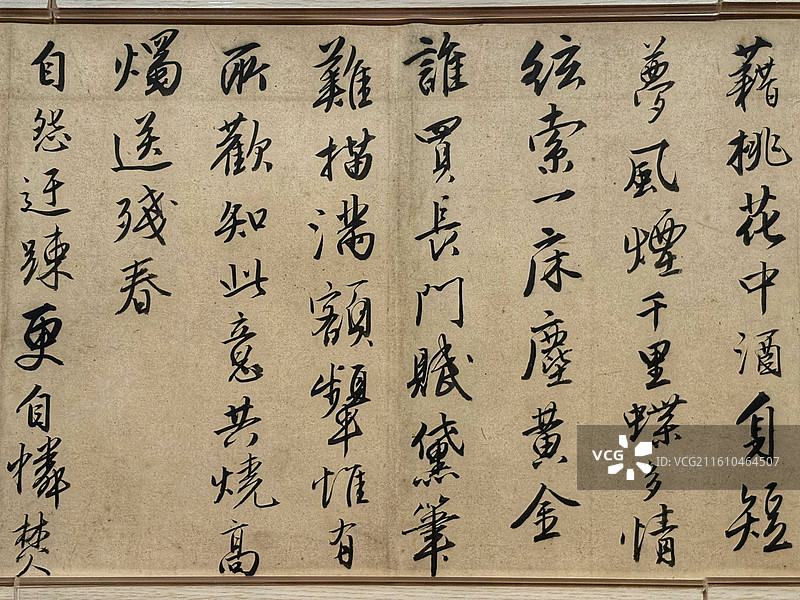 藉桃花中酒身短
夢風煙千里蝶多情
絃索一床塵黃金
誰買長門賦黛筆
難描滿額顰惟有
所歡知此意共燒高
燭送殘春
自怨迂踈更自憐焚
VCG
VCG
ID:VCG211610464507